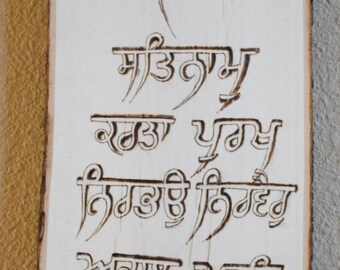 ਸਤਿਨਾਮੁ
ਕਰਤਾ ਪੁਰਖੁ
ਨਿਰਭਉ ਨਿਰਵੈਰੁ